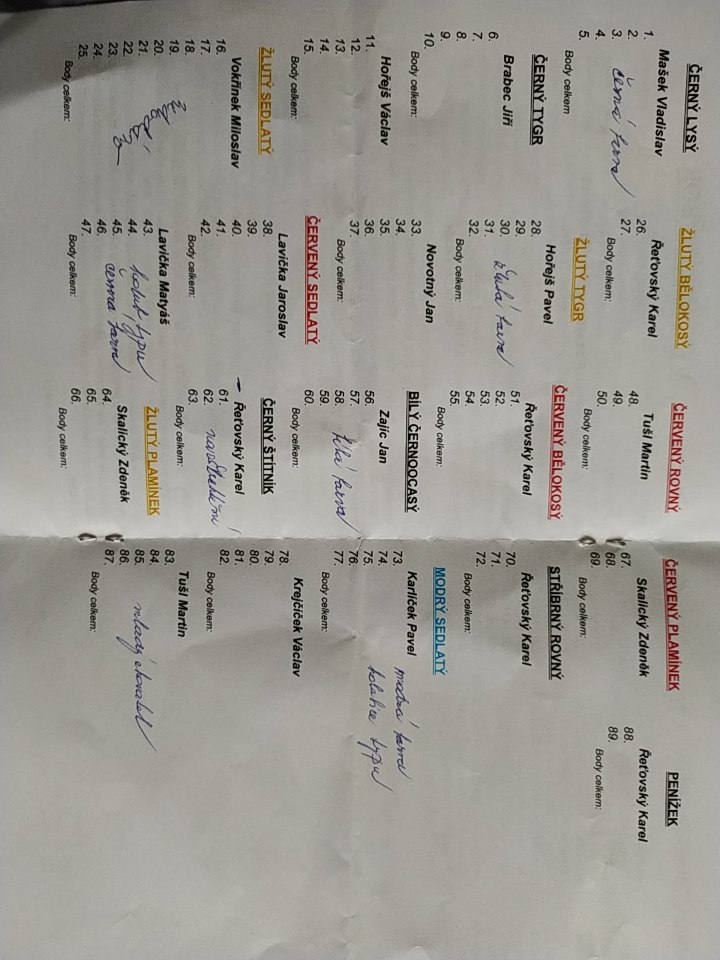 ČERNÝ LYSÝ
Mašek Vladislav
1.
2.
3. černá barva
4.
5.
Body celkem
ČERNÝ TYGR
Brabec Jiří
6.
7.
8.
9.
10.
Body celkem:
Hořejš Václav
11.
12.
13.
14.
15.
Body celkem:
ŽLUTÝ SEDLATÝ
Vokřínek Miloslav
16.
17.
18.
19.
20.
21.
22.
23.
24.
25.
Body celkem:
ŽLUTÝ BĚLOKOSÝ
Řeťovský Karel
26.
27.
Body celkem:
ŽLUTÝ TYGR
Hořejš Pavel
28.
29.
30. žlutá barva
31.
32.
Body celkem:
Novotný Jan
33.
34.
35.
36.
37.
Body celkem:
ČERVENÝ SEDLATÝ
Lavička Jaroslav
38.
39.
40.
41.
42.
Body celkem:
Lavička Matyáš
43.
44. holub typu
45. červená barva
46.
47.
Body celkem:
ČERVENÝ ROVNÝ
Tušl Martin
48.
49.
50.
Body celkem:
ČERVENÝ BĚLOKOSÝ
Řeťovský Karel
51.
52.
53.
54.
55.
Body celkem:
BÍLÝ ČERNOOCASÝ
Zajíc Jan
56.
57.
58. bílá barva
59.
60.
Body celkem:
ČERNÝ ŠTÍTNÍK
Řeťovský Karel
61.
62.
63.
Body celkem:
ŽLUTÝ PLAMÍNEK
Skalický Zdeněk
64.
65.
66.
Body celkem:
ČERVENÝ PLAMÍNEK
Skalický Zdeněk
67.
68.
69.
Body celkem:
STŘÍBRNÝ ROVNÝ
Řeťovský Karel
70.
71.
72.
Body celkem:
MODRÝ SEDLATÝ
Karlíček Pavel modrá barva
73.
74. holubice typu
75.
76.
77.
Body celkem:
Krejčíček Václav
78.
79.
80.
81.
82.
Body celkem:
Tušl Martin
83.
84.
85. mladý chovatel
86.
87.
Body celkem:
PENÍŽEK
Řeťovský Karel
88.
89.
Body celkem: